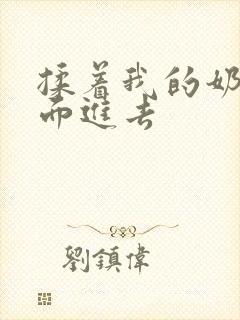 揉着我的奶
而進去
劉鎮偉